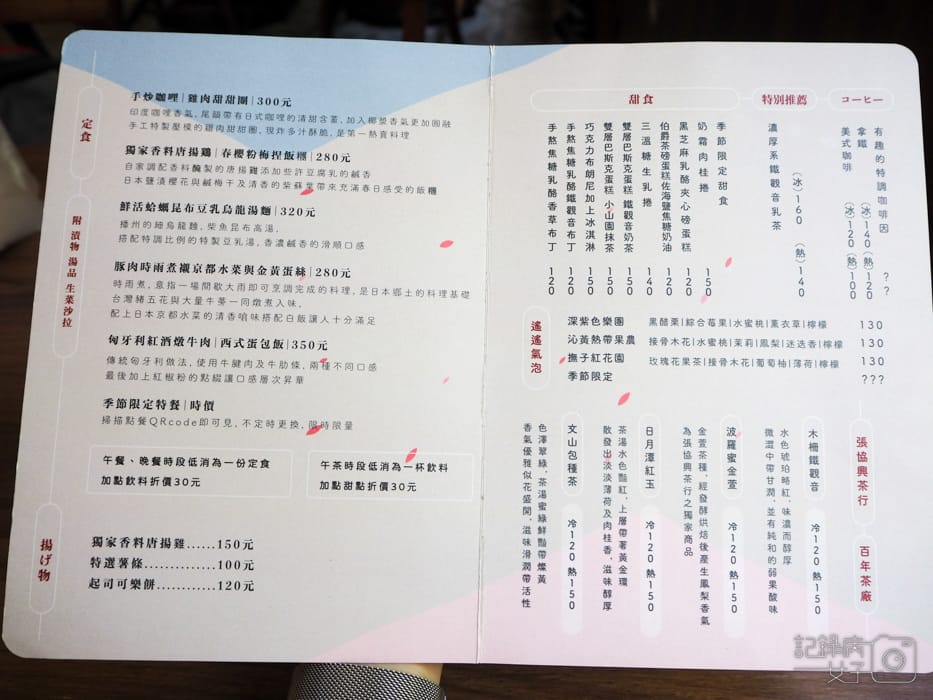 定食
附 漬物 湯品 生菜沙拉
手炒咖哩|雞肉甜甜圈|300元
印度咖哩香氣,尾韻帶有日式咖哩的清甜含蓄,加入椰漿香氣更加圓融
手工特製壓模的雞肉甜甜圈,現炸多汁酥脆,是第一熱賣料理
獨家香料唐揚鷄|春櫻粉梅捏飯糰|280元
自家調配香料醃製的唐揚雞添加些許豆腐乳的鹹香
日本鹽漬櫻花與鹹梅干及清香的紫蘇葉帶來充滿春日感受的飯糰
鮮活蛤蠣昆布豆乳烏龍湯麵|320元
播州的細烏龍麵,柴魚昆布高湯,
搭配特調比例的特製豆乳湯,香濃鹹香的滑順口感
豚肉時雨煮襯京都水菜與金黃蛋絲|280元
時雨煮,意指一場間歇大雨即可烹調完成的料理,是日本鄉土的料理基礎
台灣豬五花與大量牛蒡一同燉煮入味,
配上日本京都水菜的清香嗆味搭配白飯讓人十分滿足
匈牙利紅酒燉牛肉|西式蛋包飯|350元
傳統匈牙利做法,使用牛腱肉及牛肋條,兩種不同口感
最後加上紅椒粉的點綴讓口感層次昇華
季節限定特餐|時價
掃描點餐QRcode即可見,不定時更換,限時限量
午餐、晚餐時段低消為一份定食
加點飲料折價30元
午茶時段低消為一杯飲料
加點甜點折價30元
揚げ物
獨家香料唐揚雞......150元
特選薯條............100元
起司可樂餅............120元
コーヒー
有趣的特調咖啡因 ??
拿鐵 (冰)140 (熱)120
美式咖啡 (冰)120 (熱)100
特別推薦
濃厚系鐵觀音奶茶
(冰)160 (熱)140
甜食
季節限定甜食
奶霜肉桂捲 150
黑芝麻乳酪夾心磅蛋糕 120
伯爵茶磅蛋糕佐海鹽焦糖奶油 120
三溫糖生乳捲 140
雙層巴斯克蛋糕 鐵觀音奶茶 120
雙層巴斯克蛋糕 小山園抹茶 120
巧克力布朗尼加上冰淇淋 150
手熬焦糖乳酪鐵觀音布丁 120
手熬焦糖乳酪香草布丁 120
遙遙氣泡
深紫色樂園 黑醋栗|綜合莓果|水蜜桃|薰衣草|檸檬 130
沁黃熱帶果農 接骨木花|水蜜桃|茉莉|鳳梨|迷迭香|檸檬 130
撫子紅花園 玫瑰花果茶|接骨木花|葡萄柚|薄荷|檸檬 130
季節限定 ???
張協興茶行
百年茶廠
木柵鐵觀音 冷120 熱150
水色琥珀略紅,味濃而醇厚
微澀中帶甘潤,並有純和的弱果酸味
波羅蜜金萱 冷120 熱150
金萱茶種,經發酵烘焙後產生鳳梨香氣
為張協興茶行之獨家商品
日月潭紅玉 冷120 熱150
茶湯水色豔紅,上層帶著黃金環
散發出淡淡薄荷及肉桂香,滋味醇厚
文山包種茶 冷120 熱150
色澤翠綠,茶湯蜜綠鮮豔帶燦黃
香氣優雅似花盛開,滋味滑潤帶活性
記錄病女子